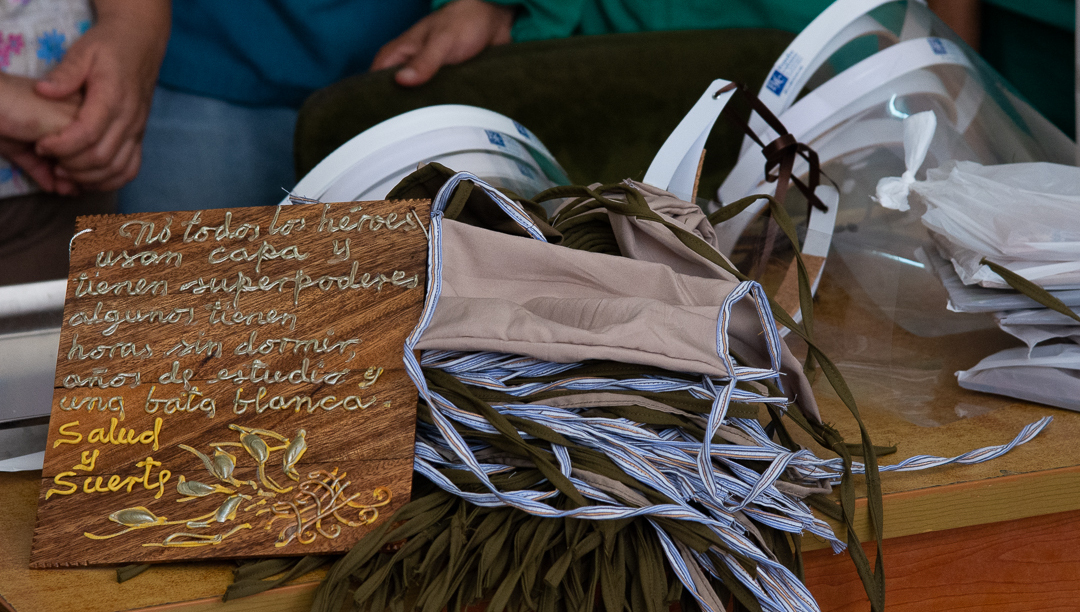 No todos los héroes
usan capa y
tienen superpoderes
algunos tienen
horas sin dormir,
años de estudio y
una bata blanca.
Salud
y
Suerte